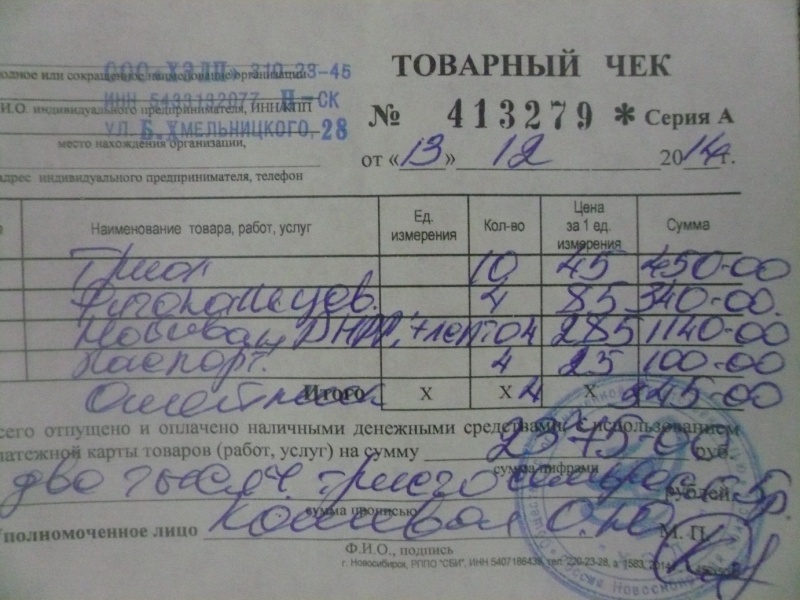 ООО «ХЭЛП» 210-23-45
одное или сокращенное наименование организации
ИНН 5433192077 Н-СК
И.О. индивидуального предпринимателя, ИНН/КПП
УЛ. Б. ХМЕЛЬНИЦКОГО, 28
место нахождения организации,
адрес индивидуального предпринимателя, телефон
ТОВАРНЫЙ ЧЕК
№ 413279 * Серия А
от «13» 12 2014 г.
Наименование товара, работ, услуг Ед. измерения Кол-во Цена за 1 ед. измерения Сумма
10 45 450-00
4 85 340-00
4 285 1140-00
Паспорт. 4 25 100-00
Ошейник 4 245-00
Итого Х Х Х
сего отпущено и оплачено наличными денежными средствами, с использованием
латежной карты товаров (работ, услуг) на сумму 2375-00 руб.
сумма цифрами
две тысяч. триста рублей
сумма прописью
Уполномоченное лицо М. П.
Ф.И.О., подпись
г. Новосибирск, РППО "СБИ", ИНН 5407186439, тел. 220-23-28, з. 1583, 2014